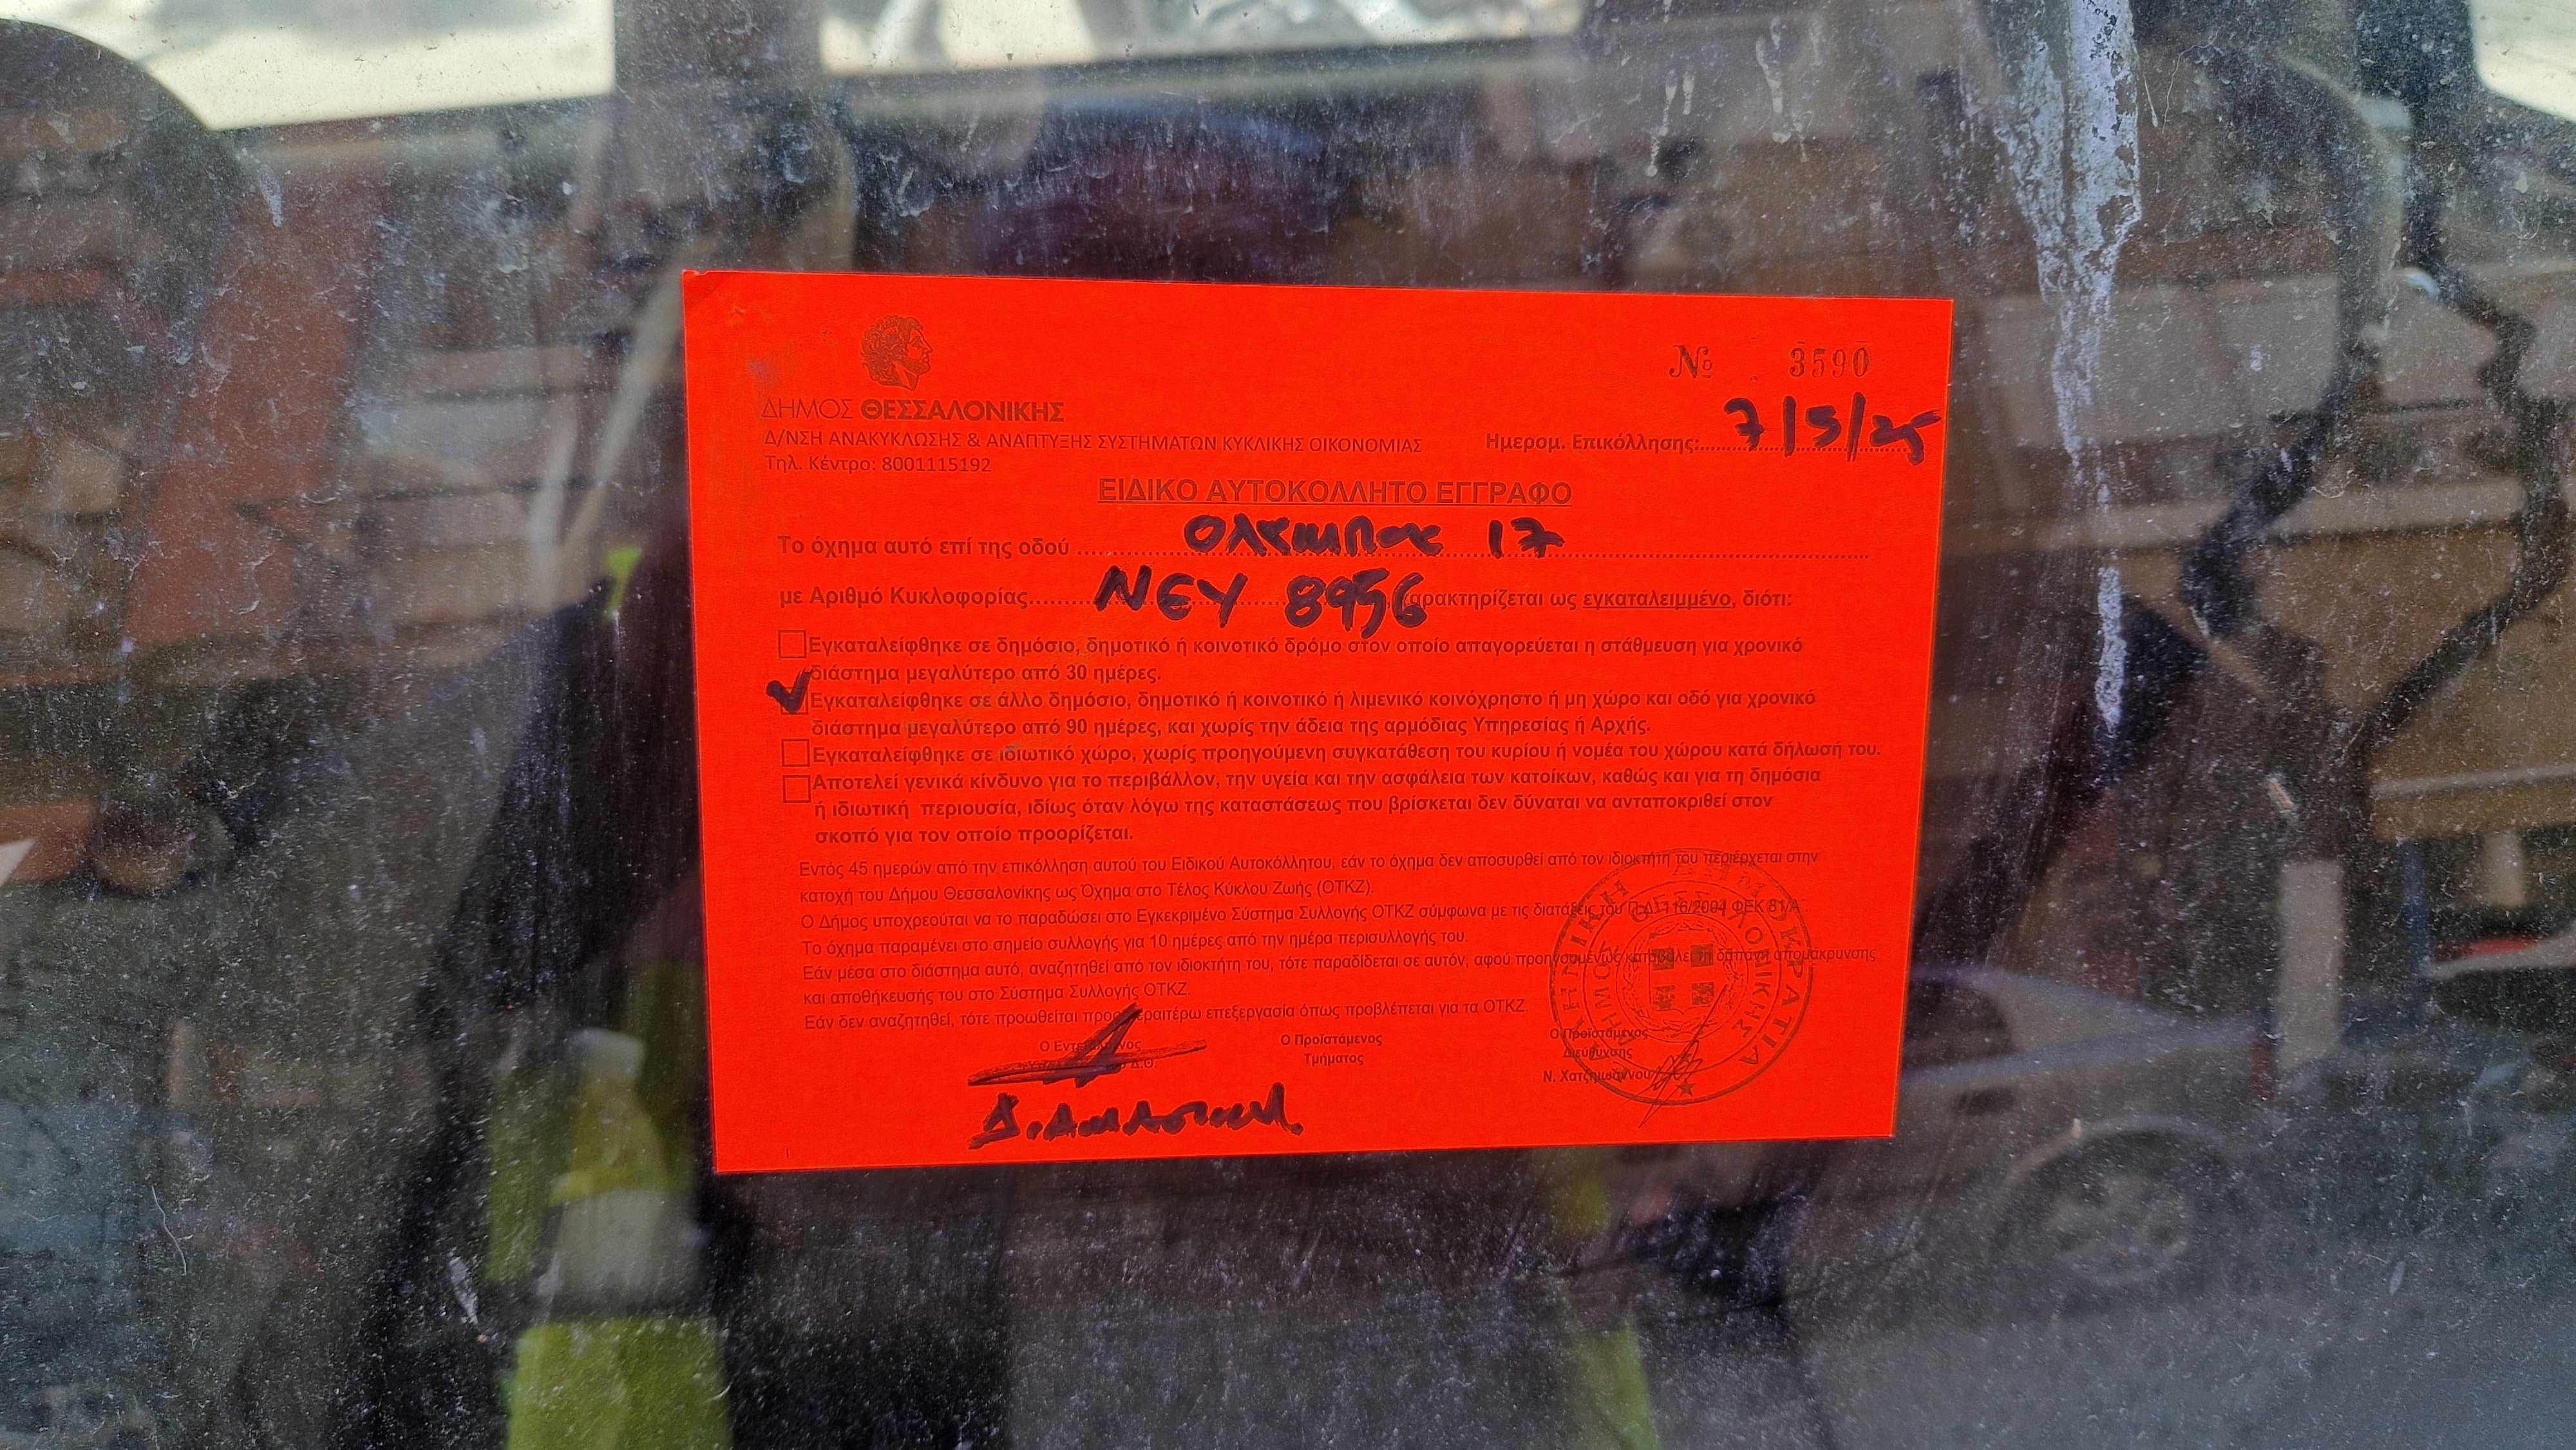 Νο 3590
ΔΗΜΟΣ ΘΕΣΣΑΛΟΝΙΚΗΣ
Δ/ΝΣΗ ΑΝΑΚΥΚΛΩΣΗΣ & ΑΝΑΠΤΥΞΗΣ ΣΥΣΤΗΜΑΤΩΝ ΚΥΚΛΙΚΗΣ ΟΙΚΟΝΟΜΙΑΣ
Ημερομ. Επικόλλησης: 7/5/25
Τηλ. Κέντρο: 8001115192
ΕΙΔΙΚΟ ΑΥΤΟΚΟΛΛΗΤΟ ΕΓΓΡΑΦΟ
Το όχημα αυτό επί της οδού 17
με Αριθμό Κυκλοφορίας ΝΕΥ 8956 χαρακτηρίζεται ως εγκαταλειμμένο, διότι:
Εγκαταλείφθηκε σε δημόσιο, δημοτικό ή κοινοτικό δρόμο στον οποίο απαγορεύεται η στάθμευση για χρονικό
διάστημα μεγαλύτερο από 30 ημέρες.
Εγκαταλείφθηκε σε άλλο δημόσιο, δημοτικό ή κοινοτικό ή λιμενικό κοινόχρηστο ή μη χώρο και οδό για χρονικό
διάστημα μεγαλύτερο από 90 ημέρες, και χωρίς την άδεια της αρμόδιας Υπηρεσίας ή Αρχής.
Εγκαταλείφθηκε σε ιδιωτικό χώρο, χωρίς προηγούμενη συγκατάθεση του κυρίου ή νομέα του χώρου κατά δήλωσή του.
Αποτελεί γενικά κίνδυνο για το περιβάλλον, την υγεία και την ασφάλεια των κατοίκων, καθώς και για τη δημόσια
ή ιδιωτική περιουσία, ιδίως όταν λόγω της καταστάσεως που βρίσκεται δεν δύναται να ανταποκριθεί στον
σκοπό για τον οποίο προορίζεται.
Εντός 45 ημερών από την επικόλληση αυτού του Ειδικού Αυτοκόλλητου, εάν το όχημα δεν αποσυρθεί από τον ιδιοκτήτη του περιέρχεται στην
κατοχή του Δήμου Θεσσαλονίκης ως Όχημα στο Τέλος Κύκλου Ζωής (ΟΤΚΖ).
Ο Δήμος υποχρεούται να το παραδώσει στο Εγκεκριμένο Σύστημα Συλλογής ΟΤΚΖ σύμφωνα με τις διατάξεις του Π.Δ. 116/2004 ΦΕΚ 81/Α
Το όχημα παραμένει στο σημείο συλλογής για 10 ημέρες από την ημέρα περισυλλογής του.
Εάν μέσα στο διάστημα αυτό, αναζητηθεί από τον ιδιοκτήτη του, τότε παραδίδεται σε αυτόν, αφού προηγουμένως καταβάλει τη δαπάνη απομάκρυνσης
και αποθήκευσής του στο Σύστημα Συλλογής ΟΤΚΖ.
Εάν δεν αναζητηθεί, τότε προωθείται προς περαιτέρω επεξεργασία όπως προβλέπεται για τα ΟΤΚΖ.
Ο Προϊστάμενος
Τμήματος
Ο Προϊστάμενος
Διεύθυνσης
Ν. Χατζηιωάννου
ΕΛΛΗΝΙΚΗ ΔΗΜΟΚΡΑΤΙΑ
ΔΗΜΟΣ ΘΕΣΣΑΛΟΝΙΚΗΣ